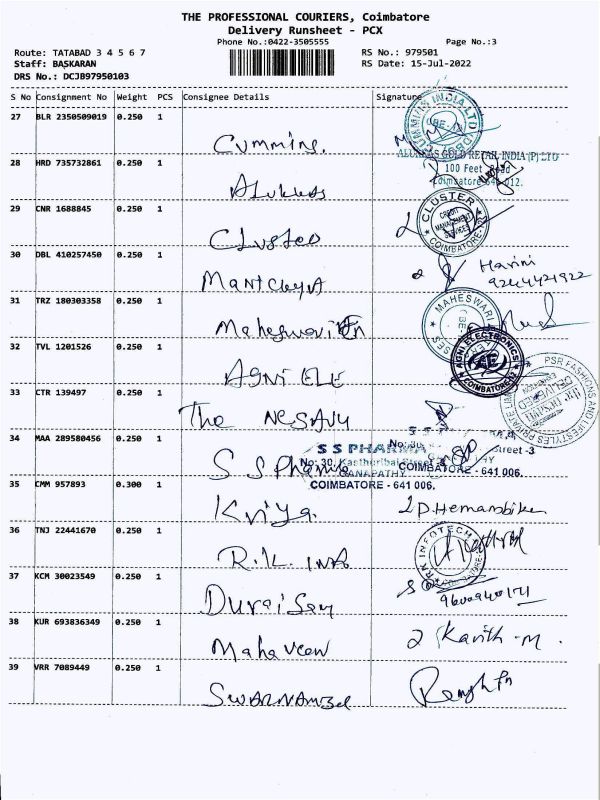 THE PROFESSIONAL COURIERS, Coimbatore
Delivery Runsheet - PCX
Phone No.:0422-3505555 Page No.:3
Route: TATABAD 3 4 5 6 7 RS No.: 979501
Staff: BASKARAN RS Date: 15-Jul-2022
DRS No.: DCJB97950103
S No Consignment No Weight PCS Consignee Details Signature
27 BLR 2350509019 0.250 1
Cummins. CUMMINS INDIA LTD
ALUKKAS GOLD RETAIL INDIA (P) LTD
28 HRD 735732861 0.250 1 100 Feet Road
Alukkas Coimbatore 641 012.
29 CNR 1688845 0.250 1 CLUSTER
CREDIT MANAGEMENT SERVICES
Cluster COIMBATORE
30 DBL 410257450 0.250 1 Harini
31 TRZ 180303358 0.250 1 MAHESWARI
32 TVL 1201526 0.250 1
AGNI ELE AGNI ELECTRONICS
COIMBATORE
33 CTR 139497 0.250 1 PSR FASHIONS AND LIFESTYLES PRIVATE
DELIVERED
The NESAVU
34 MAA 289580456 0.250 1 S S PHARMA
No: 30, Kastheribai Street-3
S S Pharma GANAPATHY
COIMBATORE - 641 006.
35 CMM 957893 0.300 1
Kriya. P.Hemambika
36 TNJ 22441670 0.250 1 RK INFOTECH
37 KCM 30023549 0.250 1
Duraisamy
38 KUR 693836349 0.250 1
Mahaveer
39 VRR 7089449 0.250 1